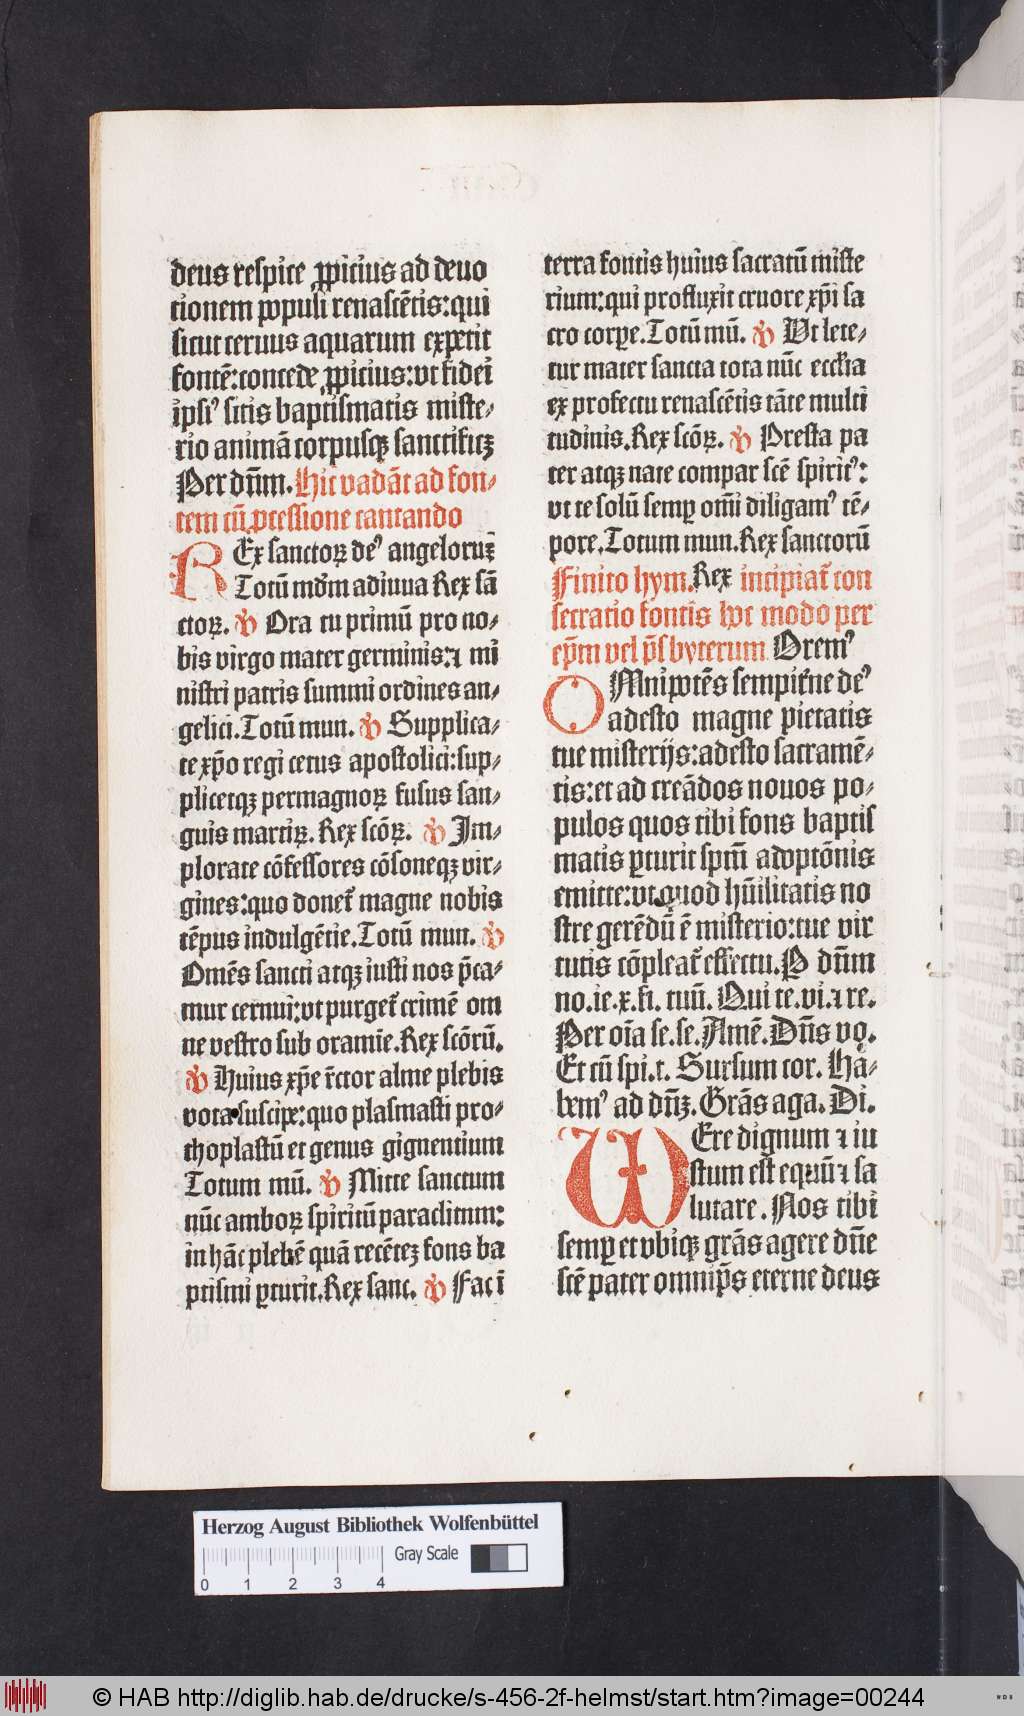 deus respice ꝓpicius ad deuo
tionem populi renascētis: qui
sicut ceruus aquarum expetit
fontē: concede ꝓpicius: vt fidei
ipsiꝰ sitis baptismatis miste⸗
rio animā corpusqꝫ sanctificꝫ
Per dn̄m. Hic vadāt ad fon⸗
tem cū ꝓcessione cantando
REx sanctoꝝ deꝰ angeloruꝫ
Totū mūdm adiuua Rex sā
ctoꝝ. ℣ Ora tu primū pro no⸗
bis virgo mater germinis: ⁊ mi
nistri patris summi ordines an⸗
gelici. Totū mun. ℣ Supplica⸗
te xp̄o regi cetus apostolici: sup⸗
plicetqꝫ permagnoꝝ fusus san⸗
guis martiꝝ. Rex scōꝝ. ℣ Im⸗
plorate cōfessores cōsoneqꝫ vir⸗
gines: quo donet᷑ magne nobis
tēpus indulgētie. Totū mun. ℣
Omēs sancti atqꝫ iusti nos p̄ca⸗
mur cernui: vt purget᷑ crimē om
ne vestro sub oramīe. Rex scōrū.
℣ Huius xp̄e r̄ctor alme plebis
vota suscipe: quo plasmasti pro⸗
thoplastū et genus gignentium
Totum mū. ℣ Mitte sanctum
nūc amboꝝ spiritū paraclitum:
in hāc plebē quā recētez fons ba
ptismi ꝑturit. Rex sanc. ℣ Fac ī
terra fontis huius sacratū miste
rium: qui profluxit cruore xp̄i sa
cro corꝑe. Totū mū. ℣ Vt lete⸗
tur mater sancta tota nūc eccl̄ia
ex profectu renascētis tāte multi
tudinis. Rex scōꝝ. ℣ Presta pa
ter atqꝫ nate compar scē spiritꝰ:
vt te solū semꝑ om̄i diligamꝰ tē⸗
pore. Totum mun. Rex sanctorū
Finito hym. Rex incipiat᷑ con
secratio fontis hoc modo per
ep̄m vel p̄sbyterum Oremꝰ
OMnipotēs sempit̄ne deꝰ
adesto magne pietatis
tue misterijs: adesto sacramē⸗
tis: et ad creādos nouos po⸗
pulos quos tibi fons baptis
matis ꝑturit sp̄m adoptōnis
emitte: vt quod hūilitatis no
stre gerēdū ē misterio: tue vir
tutis cōpleat᷑ effectu. P dn̄m
no. ie. x. fi. tuū. Qui te. vi. ⁊ re.
Per oīa se. se. Amē. Dn̄s vo.
Et cū spi. t. Sursum cor. Ha⸗
bemꝰ ad dn̄ꝫ. Grās aga. Di.
VEre dignum ⁊ iu
stum est equū ⁊ sa
lutare. Nos tibi
semꝑ et vbiqꝫ grās agere dn̄e
scē pater omnip̄s eterne deus
Herzog August Bibliothek Wolfenbüttel
Gray Scale
0 1 2 3 4
© HAB http://diglib.hab.de/drucke/s-456-2f-helmst/start.htm?image=00244